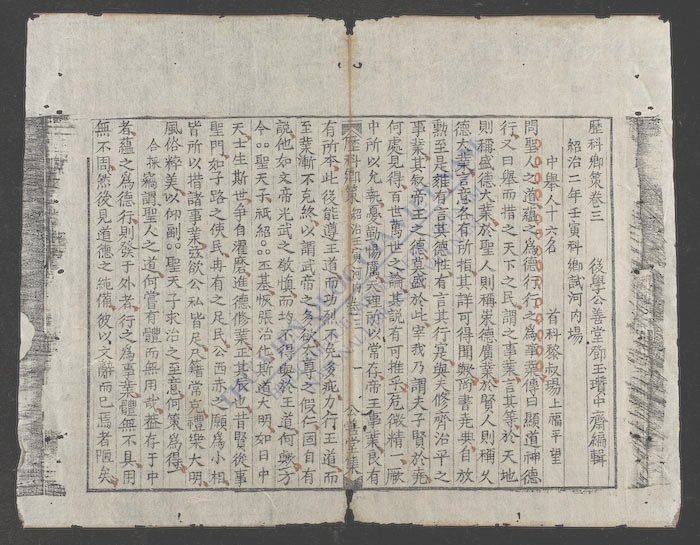 歷科鄉策卷三 後學公善堂鄧玉瓚中齋編輯
紹治二年壬寅科鄉試河内場
中舉人十六名 首科黎叔瑒上福平望
問聖人之道蘊之爲德行行之爲事業傳曰顯道神德
行又曰舉而措之天下之民謂之事業言其等於天地
則稱盛德大業於聖人則稱崇德廣業於賢人則稱久
德大業立意各有所指其詳可得聞歟虞書堯典自放
勳至是雍有言其德性有言其行是與夫修齊治平之
事業其叙帝王之德莫盛於此宰我乃謂夫子賢於堯
何處見得百世萬世之論其説有可推乎危微精一厥
中所以允執憂勤惕厲天理所以常存帝王事業良有
歷科鄉策 紹治壬寅河内卷三 一 公善堂
有所本此後能遵王道而功利不免多疵力行王道而
至業漸不克終以謂武帝之多欲太尊之假仁固自有
説他如文帝光武之敬慎而均不得與於王道何歟方
今○○聖天子祇紹○○丕基恢張治化斯道大明如日中
天士生斯世争自濯磨進德修業正其辰也昔賢從事
聖門如子路之使民冉有之足民公西赤之願爲小相
皆所以措諸事業茲欲公私皆足凡籍常充禮樂大明
風俗粹美以仰副○○聖天子求治之至意何策爲得
合採竊謂聖人之道何嘗有體而無用哉蓋存于中
者蘊之爲德行則發于外者行之爲事業體無不具用
無不周然後見道德之純備彼以文辭而已焉者陋矣